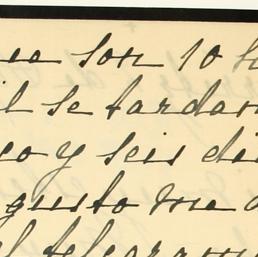 son 10
se tardan
co y seis di
gusto me
telegram